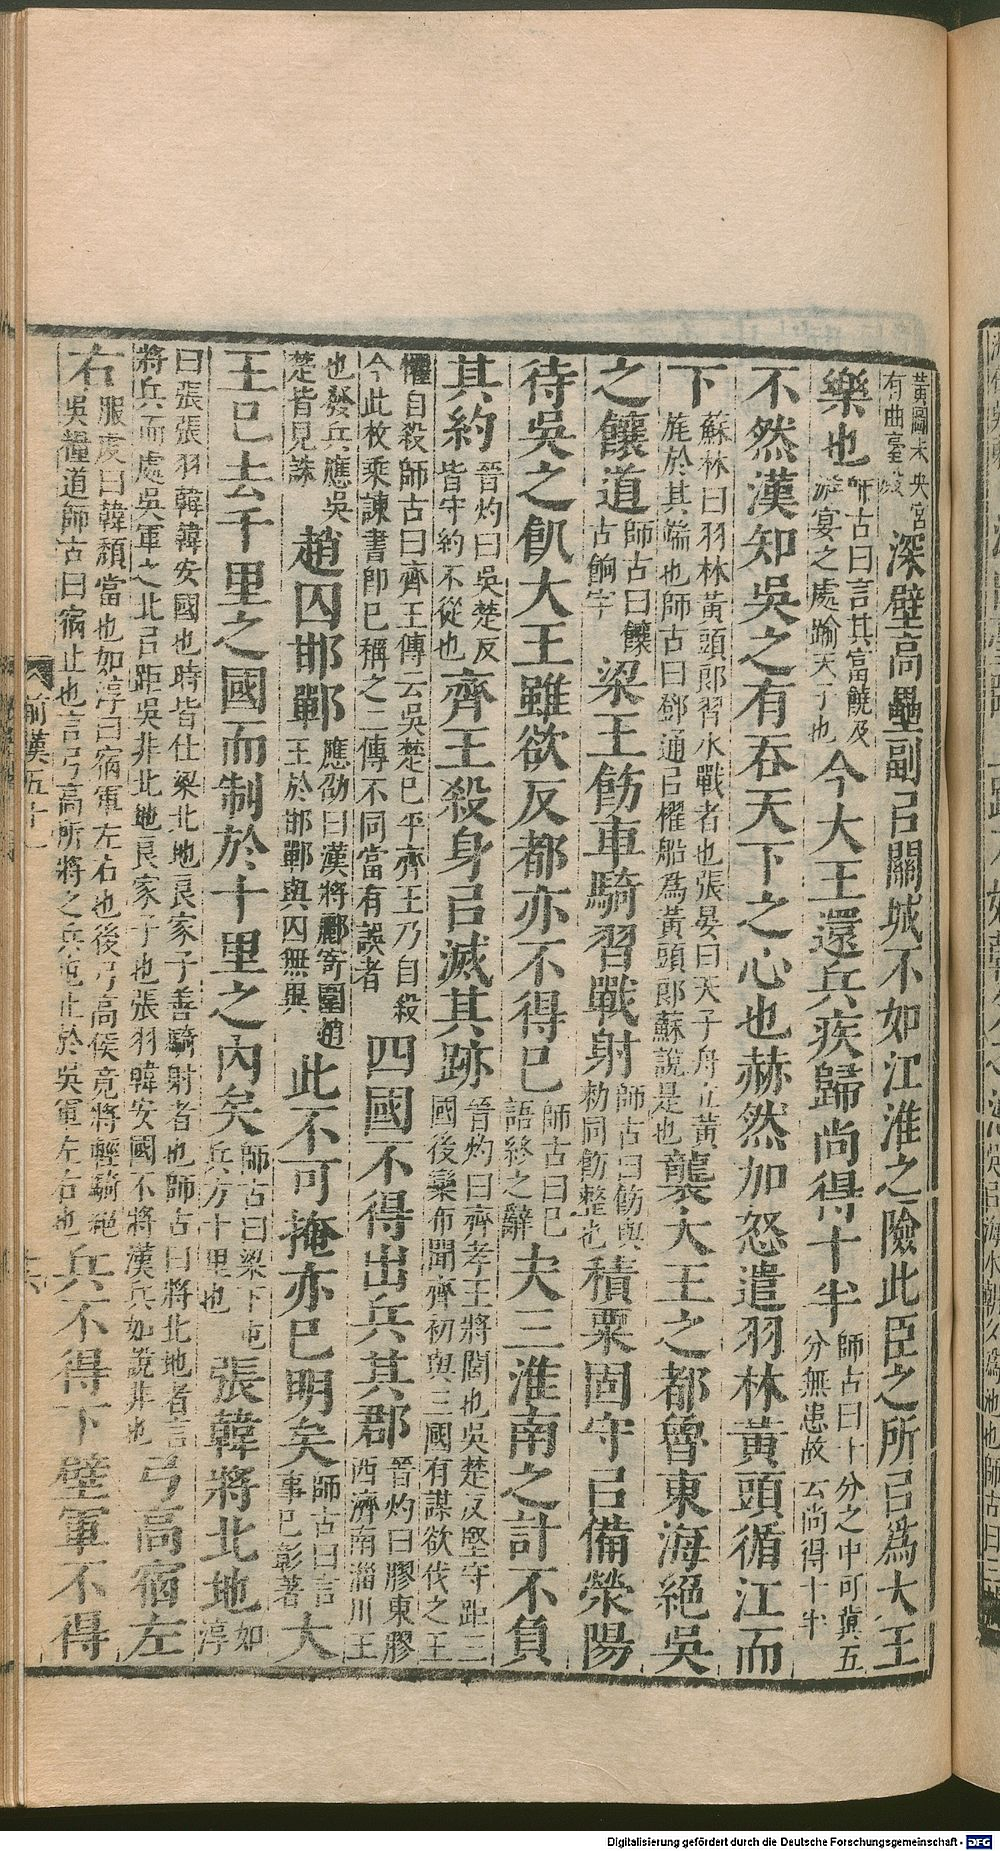 黃圖未央宮有曲臺殿深壁高壘副㠯關城不如江淮之險此臣之所㠯爲大王
樂也師古曰言其富饒及游宴之處踰天子也今大王還兵疾歸尚得十半師古曰十分之中可冀五分無患故云尚得十半
不然漢知吳之有吞天下之心也赫然加怒遣羽林黃頭循江而
下蘇林曰羽林黃頭郎習水戰者也張晏曰天子舟立黃旄於其端也師古曰鄧通㠯櫂船爲黃頭郎蘇說是也襲大王之都魯東海絕吳
之饟道師古曰饟古餉字梁王飭車騎習戰射師古曰飭與勑同飭整也積粟固守㠯備滎陽
待吳之飢大王雖欲反都亦不得已師古曰已語終之辭夫三淮南之計不負
其約晉灼曰吳楚反皆守約不從也齊王殺身㠯滅其跡晉灼曰齊孝王將閭也吳楚反堅守距三國後欒布聞齊初與三國有謀欲伐之王
懼自殺師古曰齊王傳云吳楚已平齊王乃自殺今此枚乘諫書卽已稱之二傳不同當有誤者四國不得出兵其郡晉灼曰膠東膠西濟南淄川王
也發兵應吳楚皆見誅趙囚邯鄲應劭曰漢將酈寄圍趙王於邯鄲與囚無異此不可掩亦已明矣師古曰言事已彰著大
王已去千里之國而制於十里之內矣師古曰梁下屯兵方十里也張韓將北地如淳
曰張張羽韓韓安國也時皆仕梁北地良家子善騎射者也師古曰將北地者言將兵而處吳軍之北㠯距吳非北地良家子也張羽韓安國不將漢兵如說非也弓高宿左
右服虔曰韓頹當也如淳曰宿軍左右也後弓高侯竟將輕騎絕吳糧道師古曰宿止也言弓高所將之兵屯止於吳軍左右也兵不得下壁軍不得
前漢五十一
Digitalisierung gefördert durch die Deutsche Forschungsgemeinschaft - DFG